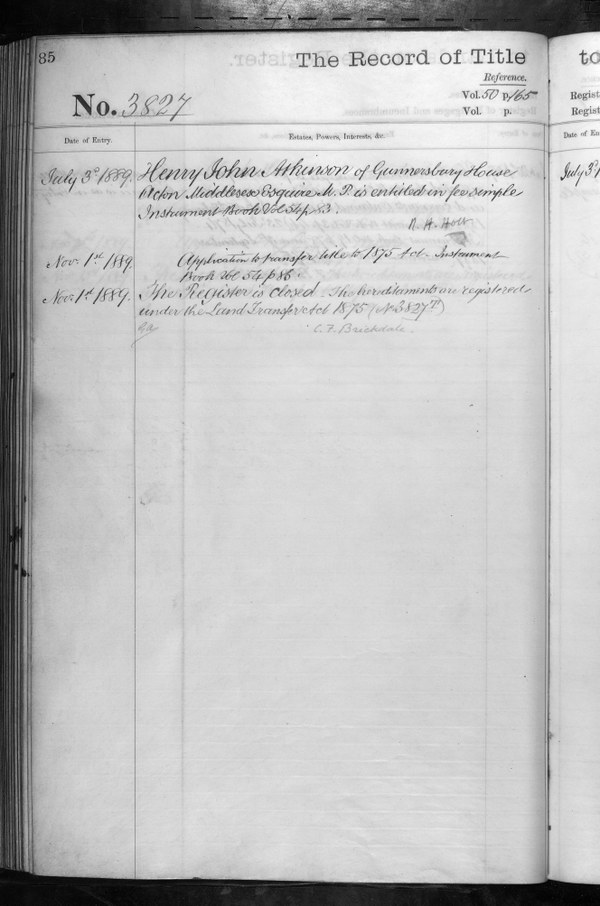 85
The Record of Title
Reference.
No. 3827
Vol. 50 p. 165
Vol. p.
Date of Entry.
Estates, Powers, Interests, &c.
July 3d 1889.
Henry John Atkinson of Gunnersbury House
Acton Middlesex Esquire M. P. is entitled in fee simple
Instrument Book Vol 54 p
R. H. Holt
Nov. 1st 1889.
Application to transfer title to 1875 Act. Instrument
Book Vol 54 p 86
Nov. 1st 1889.
The Register is closed The hereditaments are registered
under the Land Transfer Act 1875 (No 3827 )
C. F. Brickdale.
to
Regist
Regist
Date of En
July 3d 1